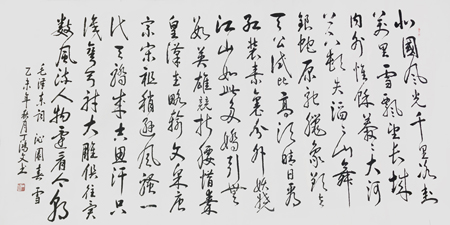 北國風光千里冰封
萬里雪飄望長城
内外惟餘莽莽大河
上下頓失滔滔山舞
銀蛇原馳蠟象欲與
天公試比高須晴日看
紅裝素裹分外妖嬈
江山如此多嬌引無
數英雄競折腰惜秦
皇漢武略輸文采唐
宗宋祖稍遜風騷一
代天驕成吉思汗只
識彎弓射大雕俱往矣
數風流人物還看今朝
毛澤東詞 沁園春 雪
乙未年秋月